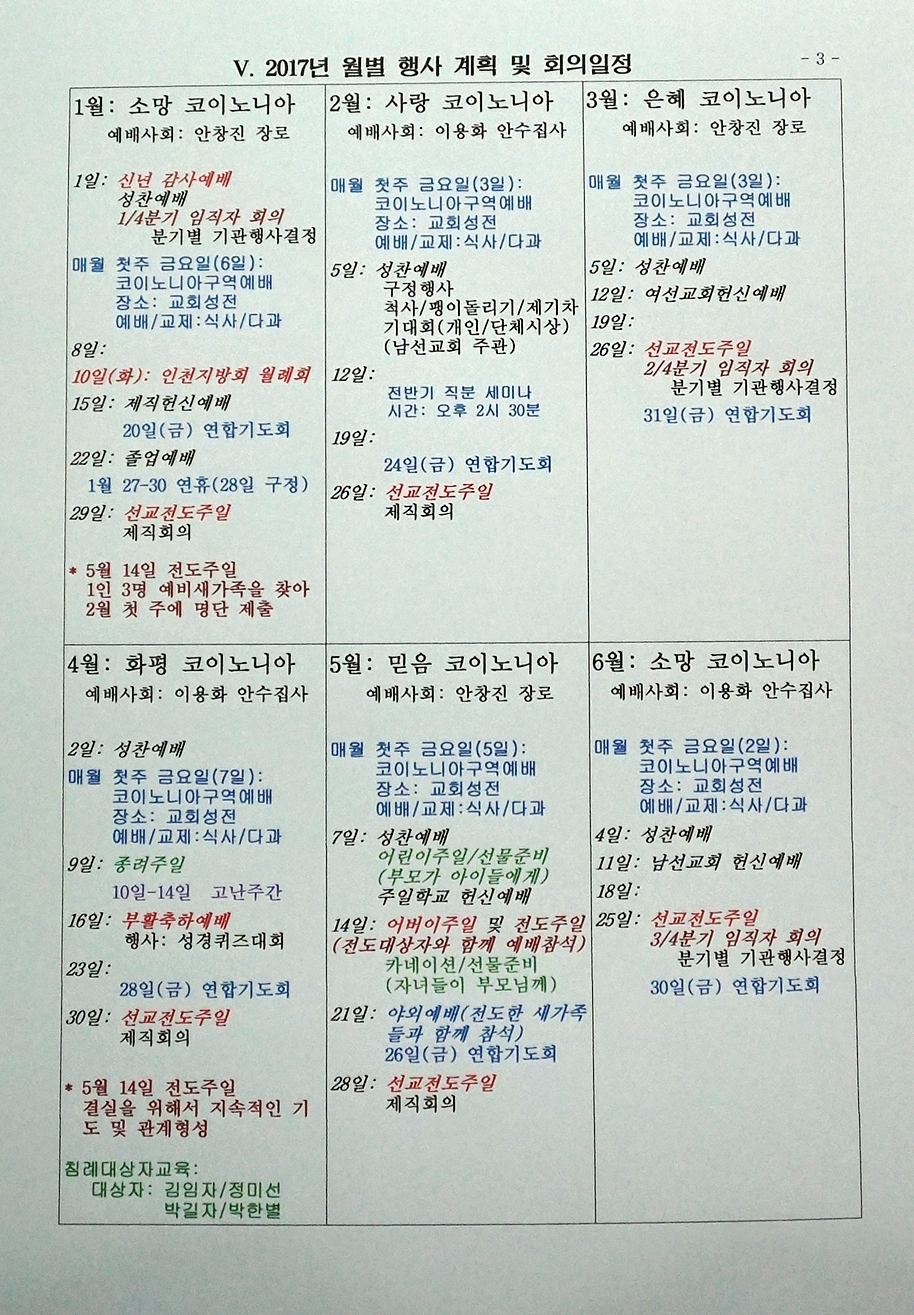 V. 2017년 월별 행사 계획 및 회의일정
- 3 -
1월: 소망 코이노니아
예배사회: 안창진 장로
1일: 신년 감사예배
성찬예배
1/4분기 임직자 회의
분기별 기관행사결정
매월 첫주 금요일(6일):
코이노니아구역예배
장소: 교회성전
예배/교제:식사/다과
8일:
10일(화): 인천지방회 월례회
15일: 제직헌신예배
20일(금) 연합기도회
22일: 졸업예배
1월 27-30 연휴(28일 구정)
29일: 선교전도주일
제직회의
* 5월 14일 전도주일
1인 3명 예비새가족을 찾아
2월 첫 주에 명단 제출
2월: 사랑 코이노니아
예배사회: 이용화 안수집사
매월 첫주 금요일(3일):
코이노니아구역예배
장소: 교회성전
예배/교제:식사/다과
5일: 성찬예배
구정행사
척사/팽이돌리기/제기차
기대회(개인/단체시상)
(남선교회 주관)
12일:
전반기 직분 세미나
시간: 오후 2시 30분
19일:
24일(금) 연합기도회
26일: 선교전도주일
제직회의
3월: 은혜 코이노니아
예배사회: 안창진 장로
매월 첫주 금요일(3일):
코이노니아구역예배
장소: 교회성전
예배/교제:식사/다과
5일: 성찬예배
12일: 여선교회헌신예배
19일:
26일: 선교전도주일
2/4분기 임직자 회의
분기별 기관행사결정
31일(금) 연합기도회
4월: 화평 코이노니아
예배사회: 이용화 안수집사
2일: 성찬예배
매월 첫주 금요일(7일):
코이노니아구역예배
장소: 교회성전
예배/교제:식사/다과
9일: 종려주일
10일-14일 고난주간
16일: 부활축하예배
행사: 성경퀴즈대회
23일:
28일(금) 연합기도회
30일: 선교전도주일
제직회의
* 5월 14일 전도주일
결실을 위해서 지속적인 기
도 및 관계형성
침례대상자교육:
대상자: 김임자/정미선
박길자/박한별
5월: 믿음 코이노니아
예배사회: 안창진 장로
매월 첫주 금요일(5일):
코이노니아구역예배
장소: 교회성전
예배/교제:식사/다과
7일: 성찬예배
어린이주일/선물준비
(부모가 아이들에게)
주일학교 헌신예배
14일: 어버이주일 및 전도주일
(전도대상자와 함께 예배참석)
카네이션/선물준비
(자녀들이 부모님께)
21일: 야외예배(전도한 새가족
들과 함께 참석)
26일(금) 연합기도회
28일: 선교전도주일
제직회의
6월: 소망 코이노니아
예배사회: 이용화 안수집사
매월 첫주 금요일(2일):
코이노니아구역예배
장소: 교회성전
예배/교제:식사/다과
4일: 성찬예배
11일: 남선교회 헌신예배
18일:
25일: 선교전도주일
3/4분기 임직자 회의
분기별 기관행사결정
30일(금) 연합기도회